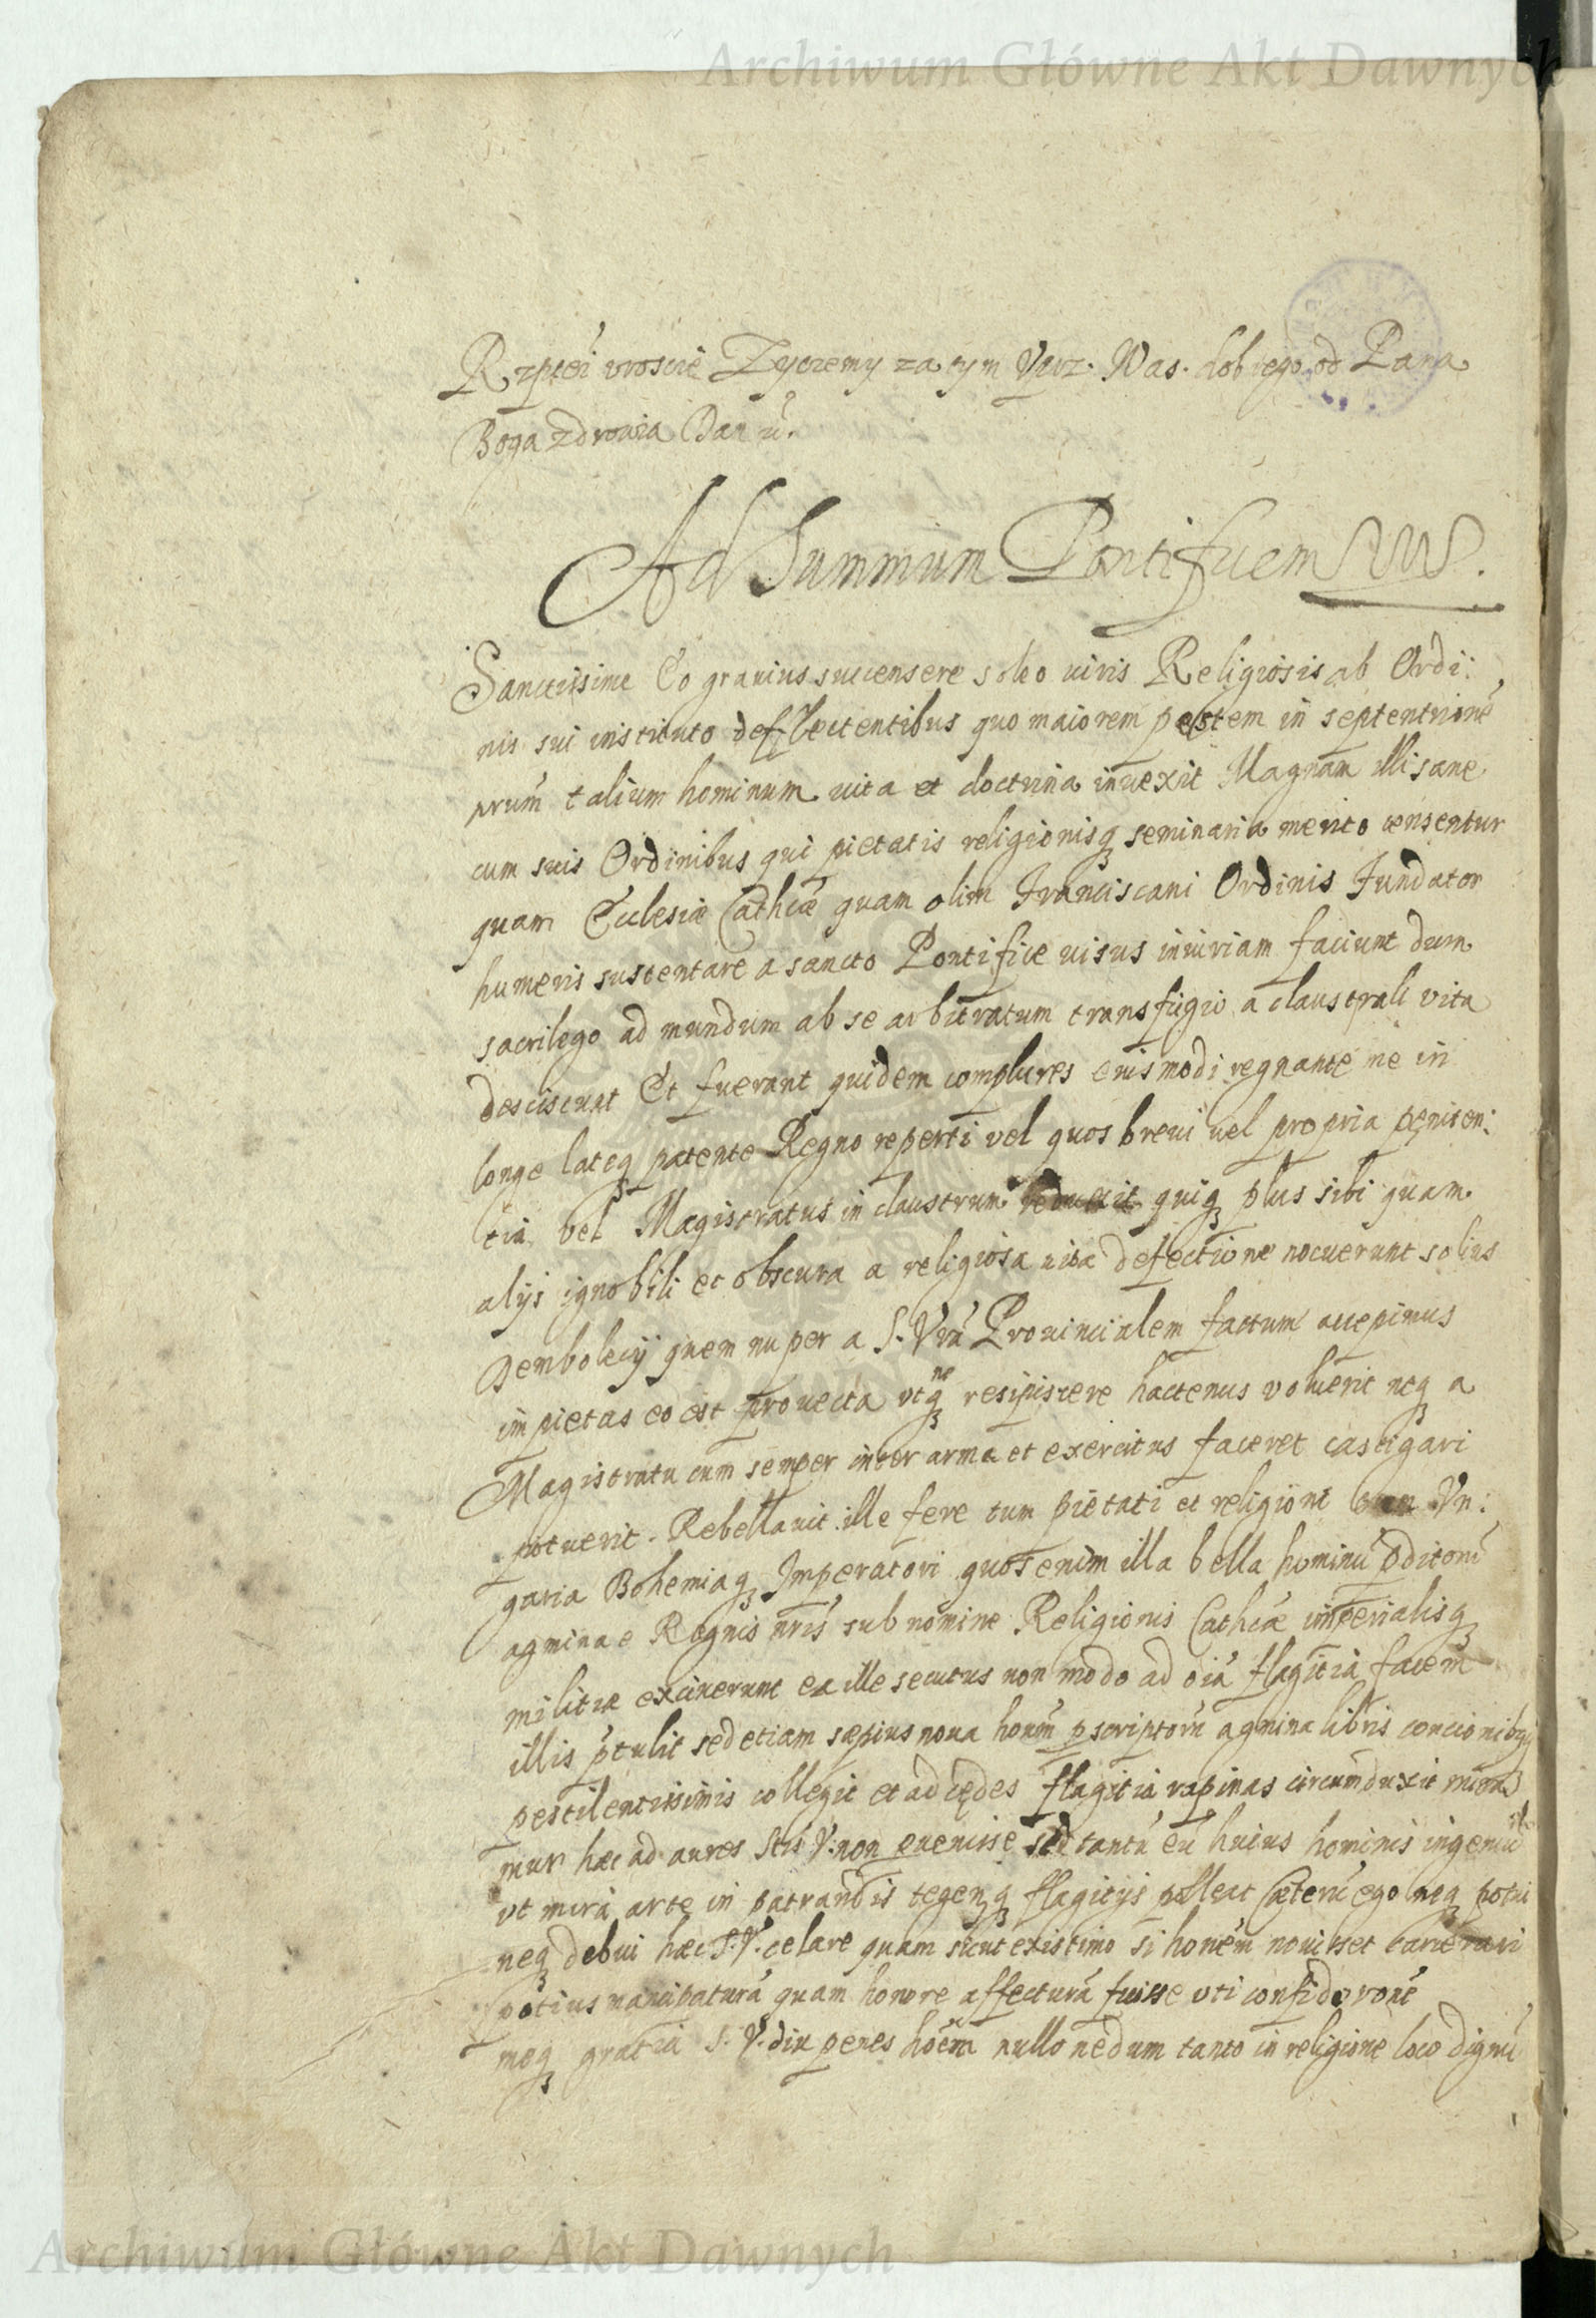 Archiwum Główne Akt Dawnych
Rzptéi vroscie Zyczemy za tym Vprz. Was. dobrego od Pana
Boga zdrowia Dan
Ad Summum Pontificem
Sanctissime Eo grauius succensere soleo uiris Religiosis ab Ordi:
nis sui instituto deflectentibus quo maiorem pestem in septentrione
talium hominum uita et doctrina inuexit Magnam illi sane
cum suis Ordinibus qui pietatis religionisq seminaria merito censentur
quam Ecclesiæ Cathcæ quam olim Franciscani Ordinis Fundator
humeris sustentare a sancto Pontifice uisus iniuriam faciunt dum
sacrilego ad mundum ab se arbitratum transfugio a claustrali vita
desciscunt Et fuerunt quidem complures eiusmodi regnante me in
longe lateq patente Regno reperti vel quos breui uel propria peniten:
tia vel Magistratus in claustrum reduxit quiq plus sibi quam
alijs ignobili et obscura a religiosa uita defectione nocuerunt solius
Dembolecij quem nuper a S. Vrá Prouincialem factum accepimus
impietas eo est prouecta vt neq resipiscere hactenus voluerit neq a
Magistratu cum semper inter arma et exercitus faceret castigari
potuerit. Rebellauit ille fere tum pietati et religioni cum Vn:
garia Bohemiaq Imperatori quos enim illa bella hominú pditorú
agmina e Regnis nris sub nomine Religionis Cathcæ imperialisq
militiæ exciuerunt ea ille secutus non modo ad oiá flagitia facem
illis ptulit sed etiam sæpius noua honum pscriptorú agmina libris concionibq
pestilentissimis collegit et ad cędes flagitia rapinas circumduxit mira
mur hæc ad aures Stis V. non euenisse sed tantú eú huius hominis ingeniú
vt mira arte in patrandis tegenq flagitijs polleat Cæterú ego neq potui
neq debui hæc S. V. celare quam sicut existimo si honém nouisset carceri
potius mancipaturá quam honore affecturá fuisse vti confido voré
meq gratia S. V. diu penes hoém nullo nedum tanto in religione loco dignú
Archiwum Główne Akt Dawnych